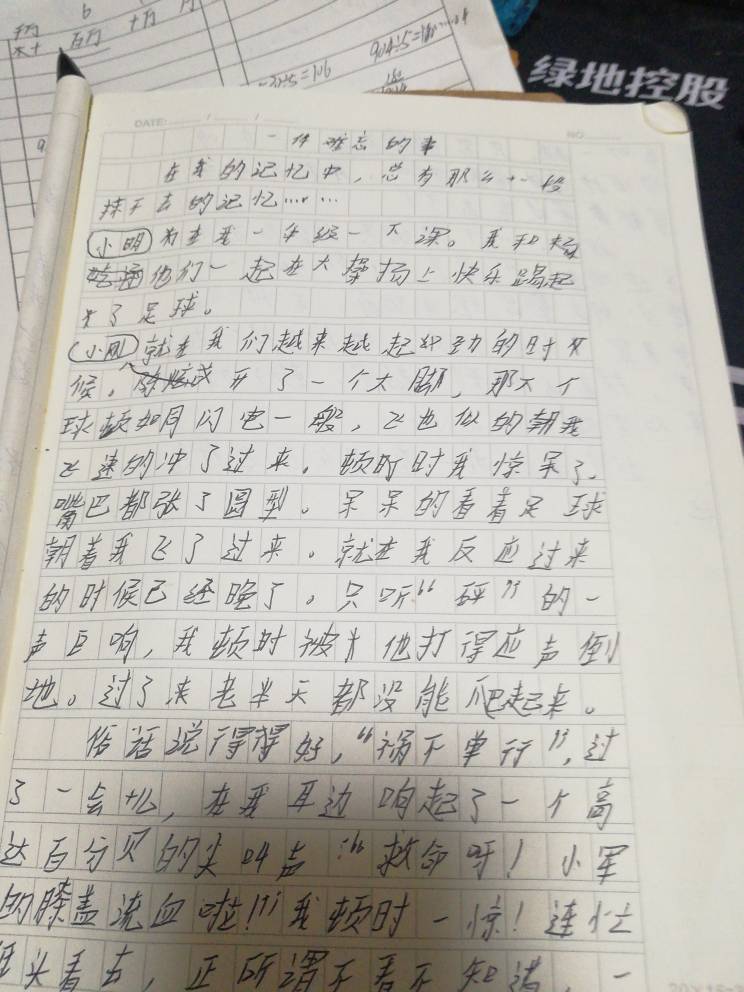 百万 十万
904÷5=
绿地控股
DATE: / /
NO.
一件难忘的事
在我的记忆中，总有那么一段
抹不去的记忆……
小明 一年级一下课。我和
他们一起在大操场上快乐踢起
来了足球。
小刚 就在我们越来越起劲的时
候。开了一个大脚，那大个
球顿如同闪电一般，飞也似的朝我
飞速的冲了过来。顿时我惊呆了，
嘴巴都张了圆型。呆呆的看着足球
朝着我飞了过来。就在我反应过来
的时候已经晚了。只听“砰”的一
声巨响，我顿时被他打得应声倒
地。过了老半天都没能爬起来。
俗话说得得好，“祸不单行”，过
了一会儿，在我耳边响起了一个高
达百分贝的尖叫声：“救命呀！小军
的膝盖流血啦！”我顿时一惊！连忙
头看去，正所谓不看不知道，一